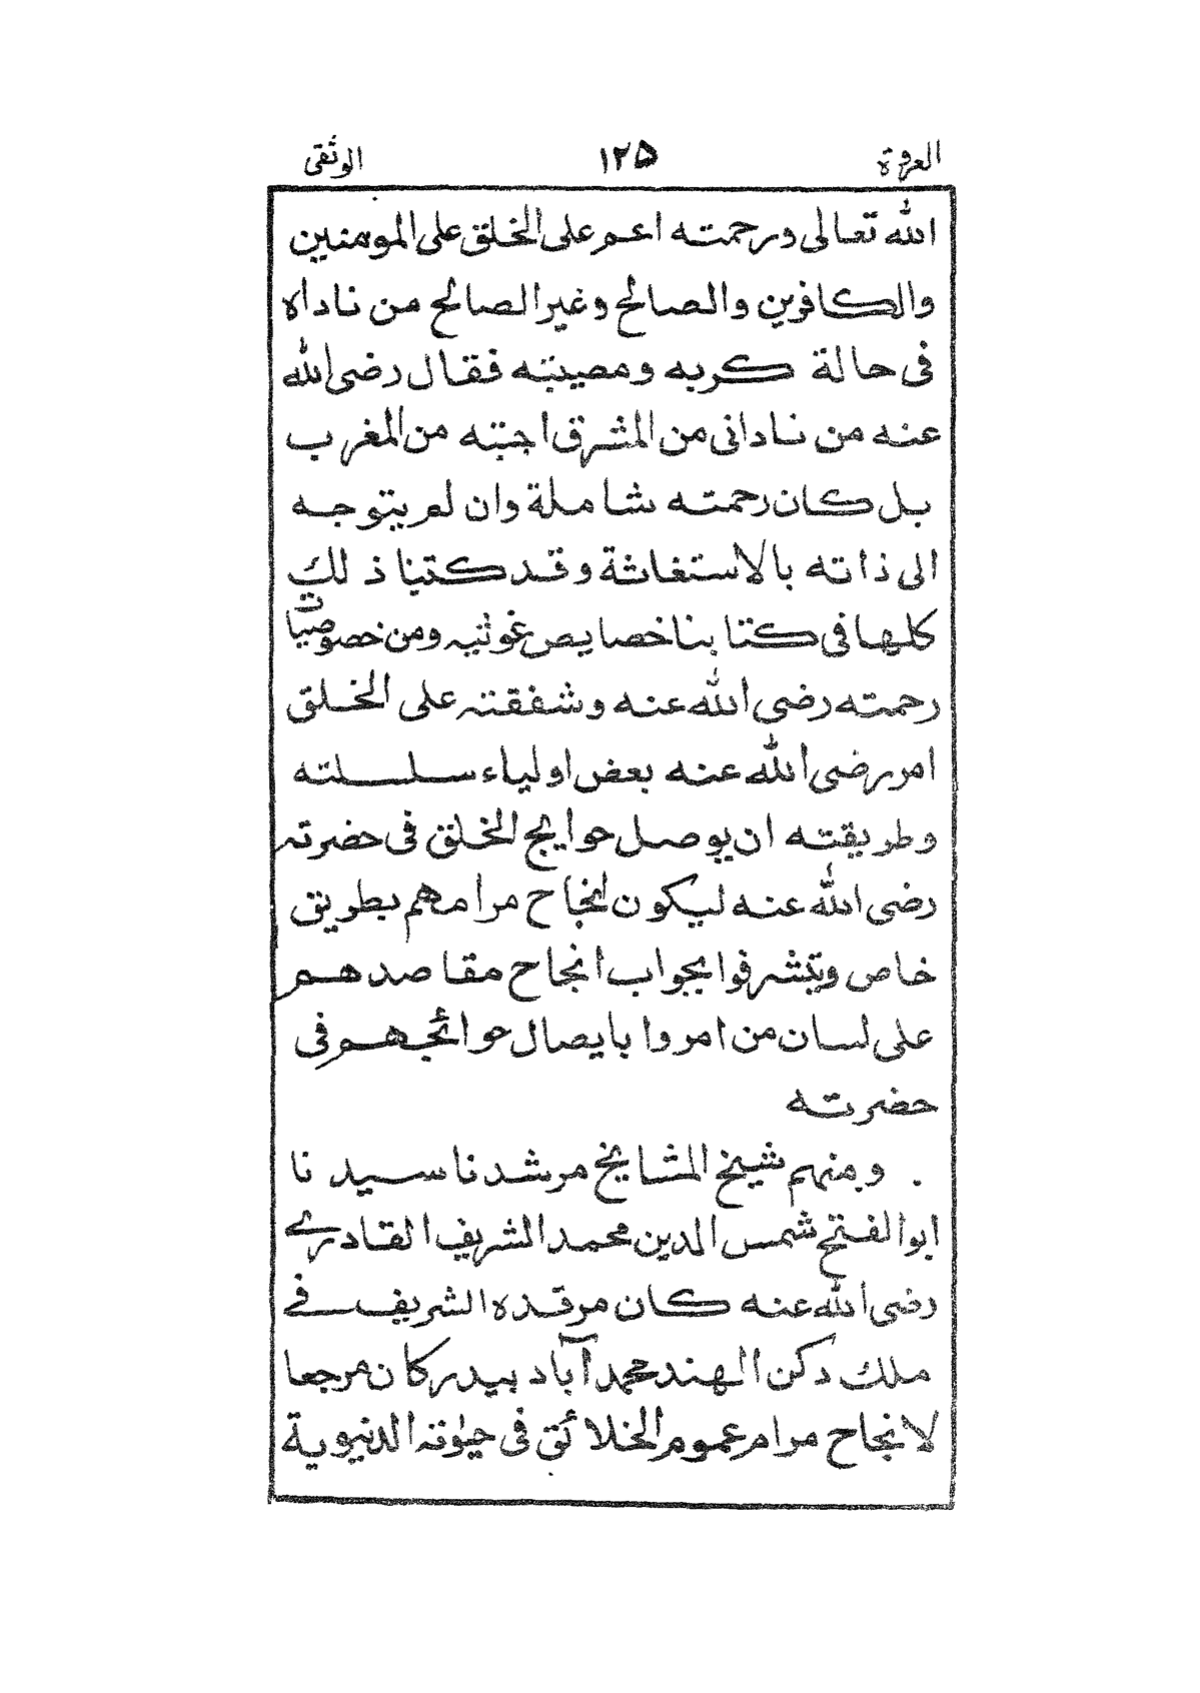 العروة ١٢٥ الوثقى
الله تعالى ورحمته اعم على الخلق على المومنين
والكافرين والصالح وغير الصالح من ناداه
فى حالة كربه ومصيبته فقال رضى الله
عنه من نادانى من المشرق اجبته من المغرب
بل كان رحمته شاملة وان لم يتوجه
الى ذاته بالاستغاثة وقد كتبنا ذلك
كلها فى كتابنا خصايص غوثيه ومن خصوصيات
رحمته رضى الله عنه وشفقته على الخلق
امر رضى الله عنه بعض اولياء سلسلته
وطريقته ان يوصل حوايج الخلق فى حضرته
رضى الله عنه ليكون انجاح مرامهم بطريق
خاص وتبشرفوا بجواب انجاح مقاصدهم
على لسان من امروا بايصال حوائجهم فى
حضرته
. ومنهم شيخ المشايخ مرشدنا سيدنا
ابو الفتح شمس الدين محمد الشريف القادرے
رضى الله عنه كان مرقده الشريف فے
ملك دكن الهند محمد آباد بيدر كان مرجعا
لانجاح مرام عموم الخلائق فى حيوٰته الدنيوية